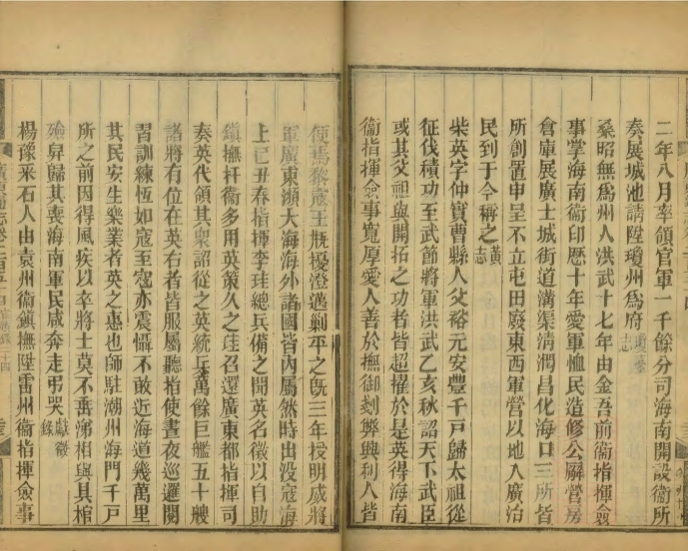 二年八月率領官軍一千餘分司海南開設衞所
奏展城池請陞瓊州爲府
桑昭無爲州人洪武十七年由金吾前衞指揮僉
事掌海南衞印歷十年愛軍恤民造修公廨營房
倉庫展廣土城街道溝渠淸潤昌化海口三所皆
所創置申呈不立屯田廢東西軍營以地入廣治
民到于今稱之黃志
柴英字仲實曹縣人父裕元安豐千戸歸太祖從
征伐積功至武節將軍洪武乙亥秋詔天下武臣
或其父祖與開拓之功者皆超擢於是英得海南
衞指揮僉事寬厚愛人善於撫御刻弊興利人皆
便焉黎寇王瓶擾澄邁剿平之旣三年授明威將
軍廣東瀕大海海外諸國皆內屬然時出没寇海
上己丑春指揮李珪總兵備之聞英名徵以自助
鎭撫扞衞多用英策久之珪召還廣東都指揮司
奏英代領其衆詔從之英統兵萬餘巨艦五十艘
諸將有位在英右者皆服屬聽指使晝夜巡邏閱
習訓練恆如寇至寇亦震懾不敢近海道幾萬里
其民安生樂業者英之惠也師駐潮州海門千戸
所之前因得風疾以卒將士莫不垂涕相與具棺
殮舁歸其喪海南軍民咸奔走弔哭獻徵錄
楊豫采石人由袁州衞鎭撫陞雷州衞指揮僉事